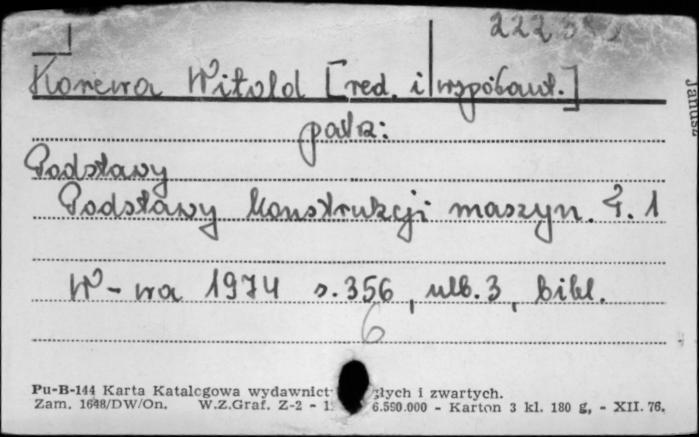 Korewa Witold [red. i współaut.]
patrz:
Podstawy
Podstawy konstrukcji maszyn. T. 1
W-wa 1974 s. 356, nlb. 3, bibl.
6
Pu-B-144 Karta Katalogowa wydawnict głych i zwartych.
Zam. 1648/DW/On. W.Z.Graf. Z-2 - 6.590.000 - Karton 3 kl. 180 g, - XII. 76.
Janusz